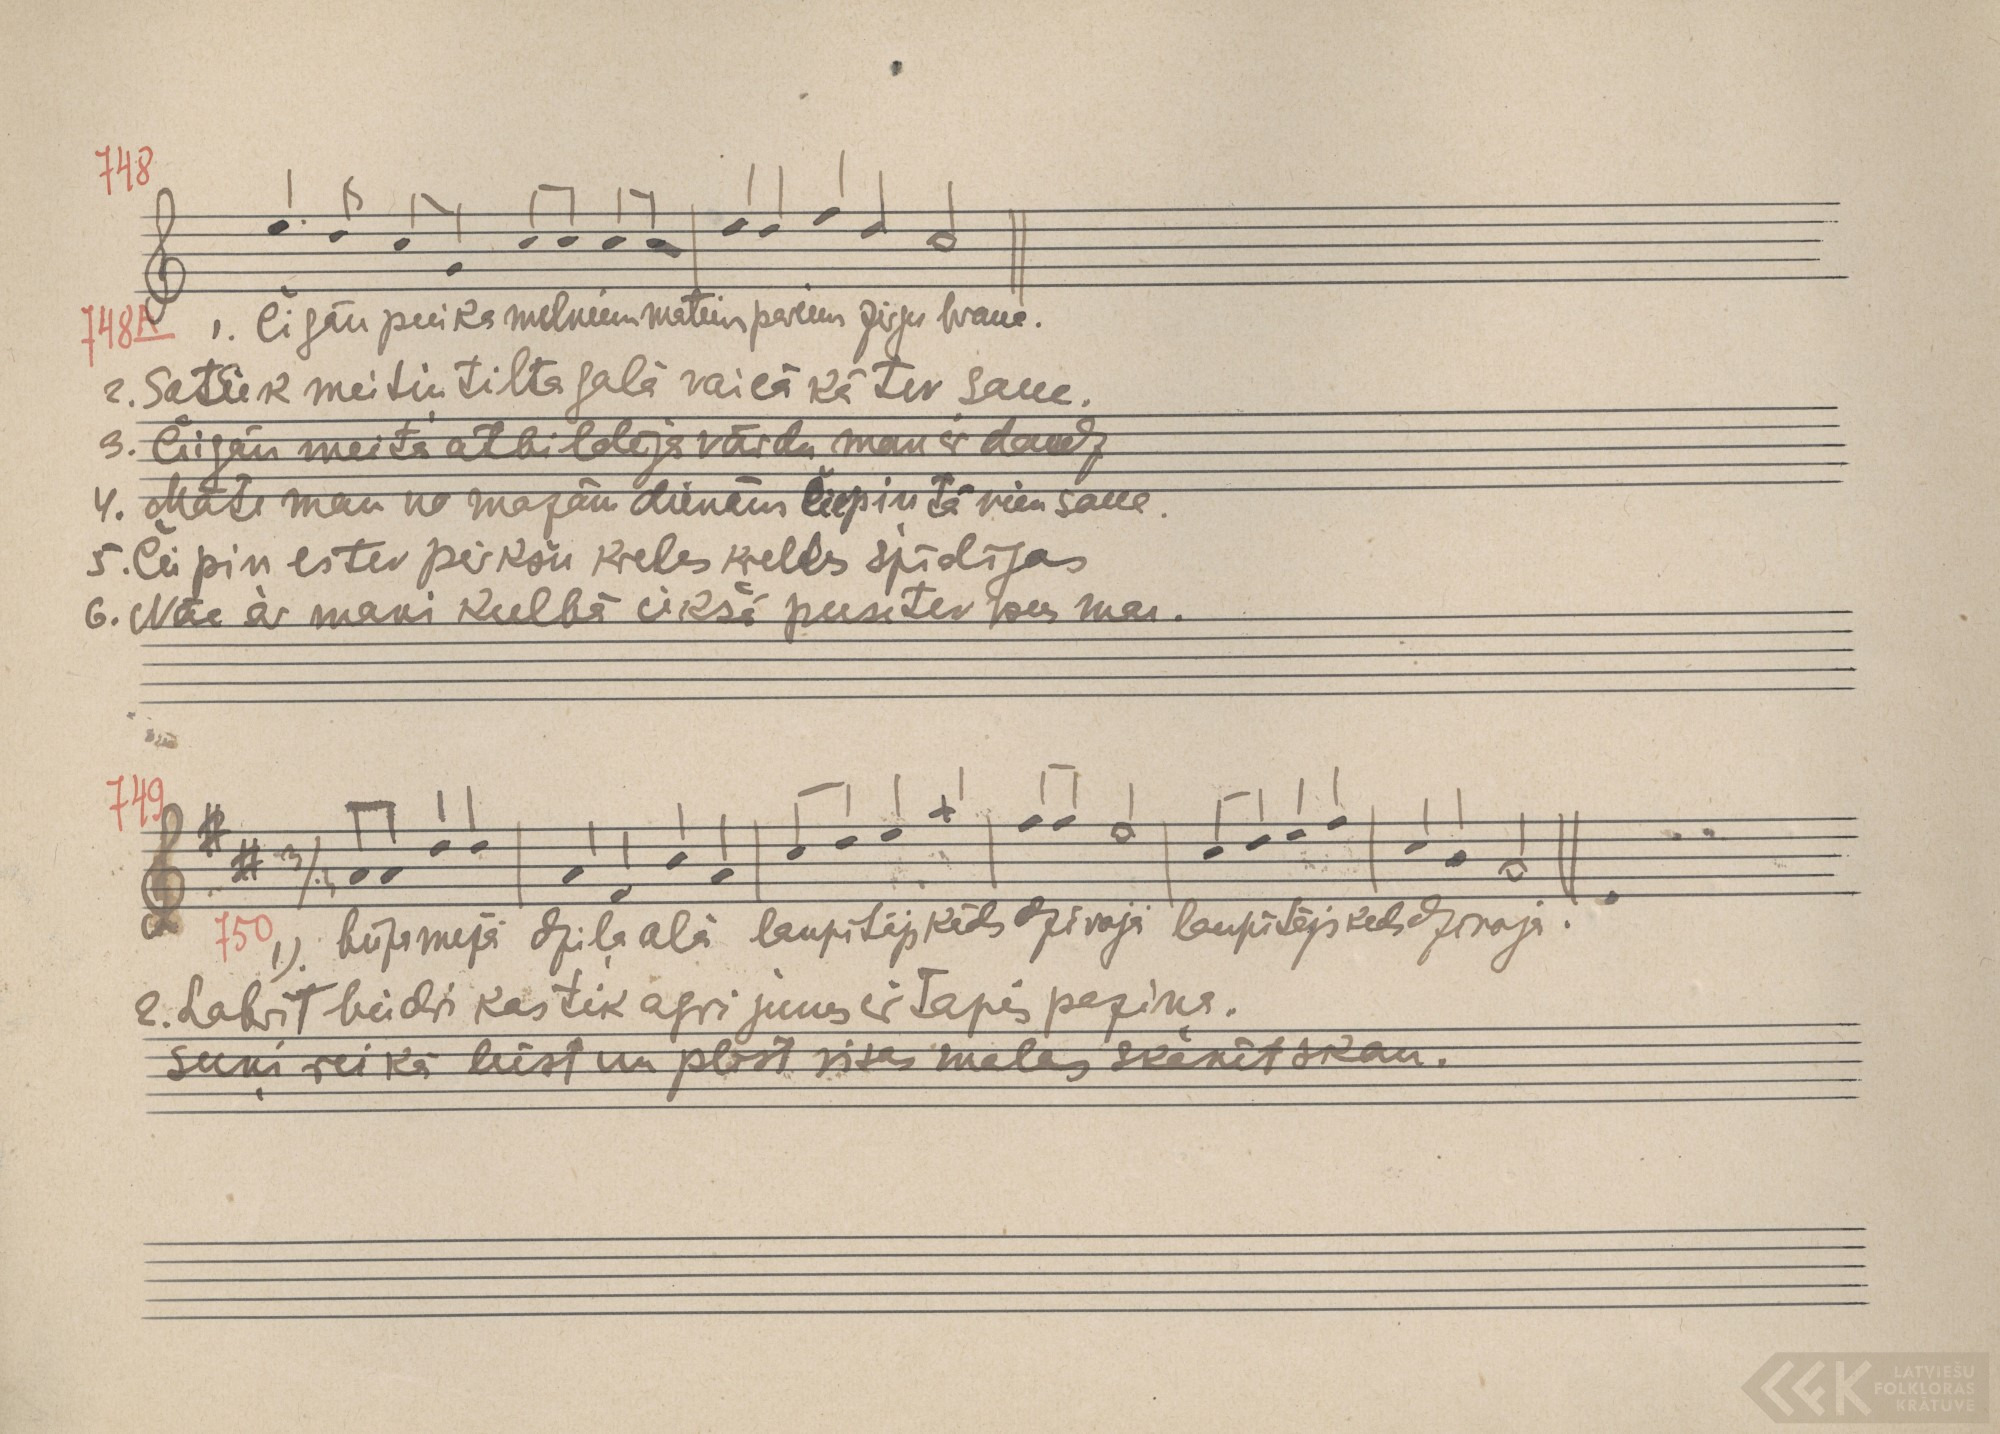 748
748A 1. Čigān puika melniem matiem pariem zirgu brauc.
2. Satiek meitin tilta galā vaicā kā tev sauc.
3. Čigān meita atbildēja vārdu man ir daudz
4. Māte man no mazām dienām Čiepin tā vien sauc.
5. Čiepin es tev pirkšu kreles kreles spīdīgas
6. Nāc ar mani kulbā iekšā puse tev pus man.
749
750 1). biezā mežā dziļa alā laupītāj kāds dzīvoja laupītājs kāds dzīvoja.
2. Labrīt biedri kas tik agri jums ir tapis paziņa.
suņi rei kā lūst un plīst visas malas skanēt skan.
LATVIEŠU
FOLKLORAS
KRĀTUVE